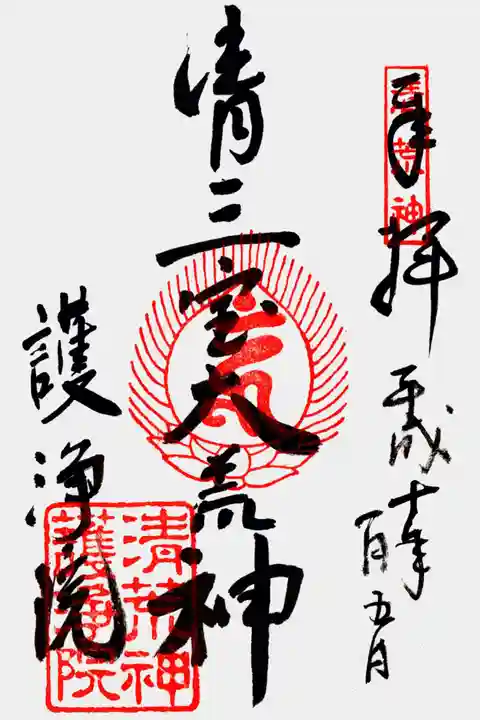 奉拝
清荒神
平成
五月
清三宝大荒神
護浄院
清荒神
護浄院